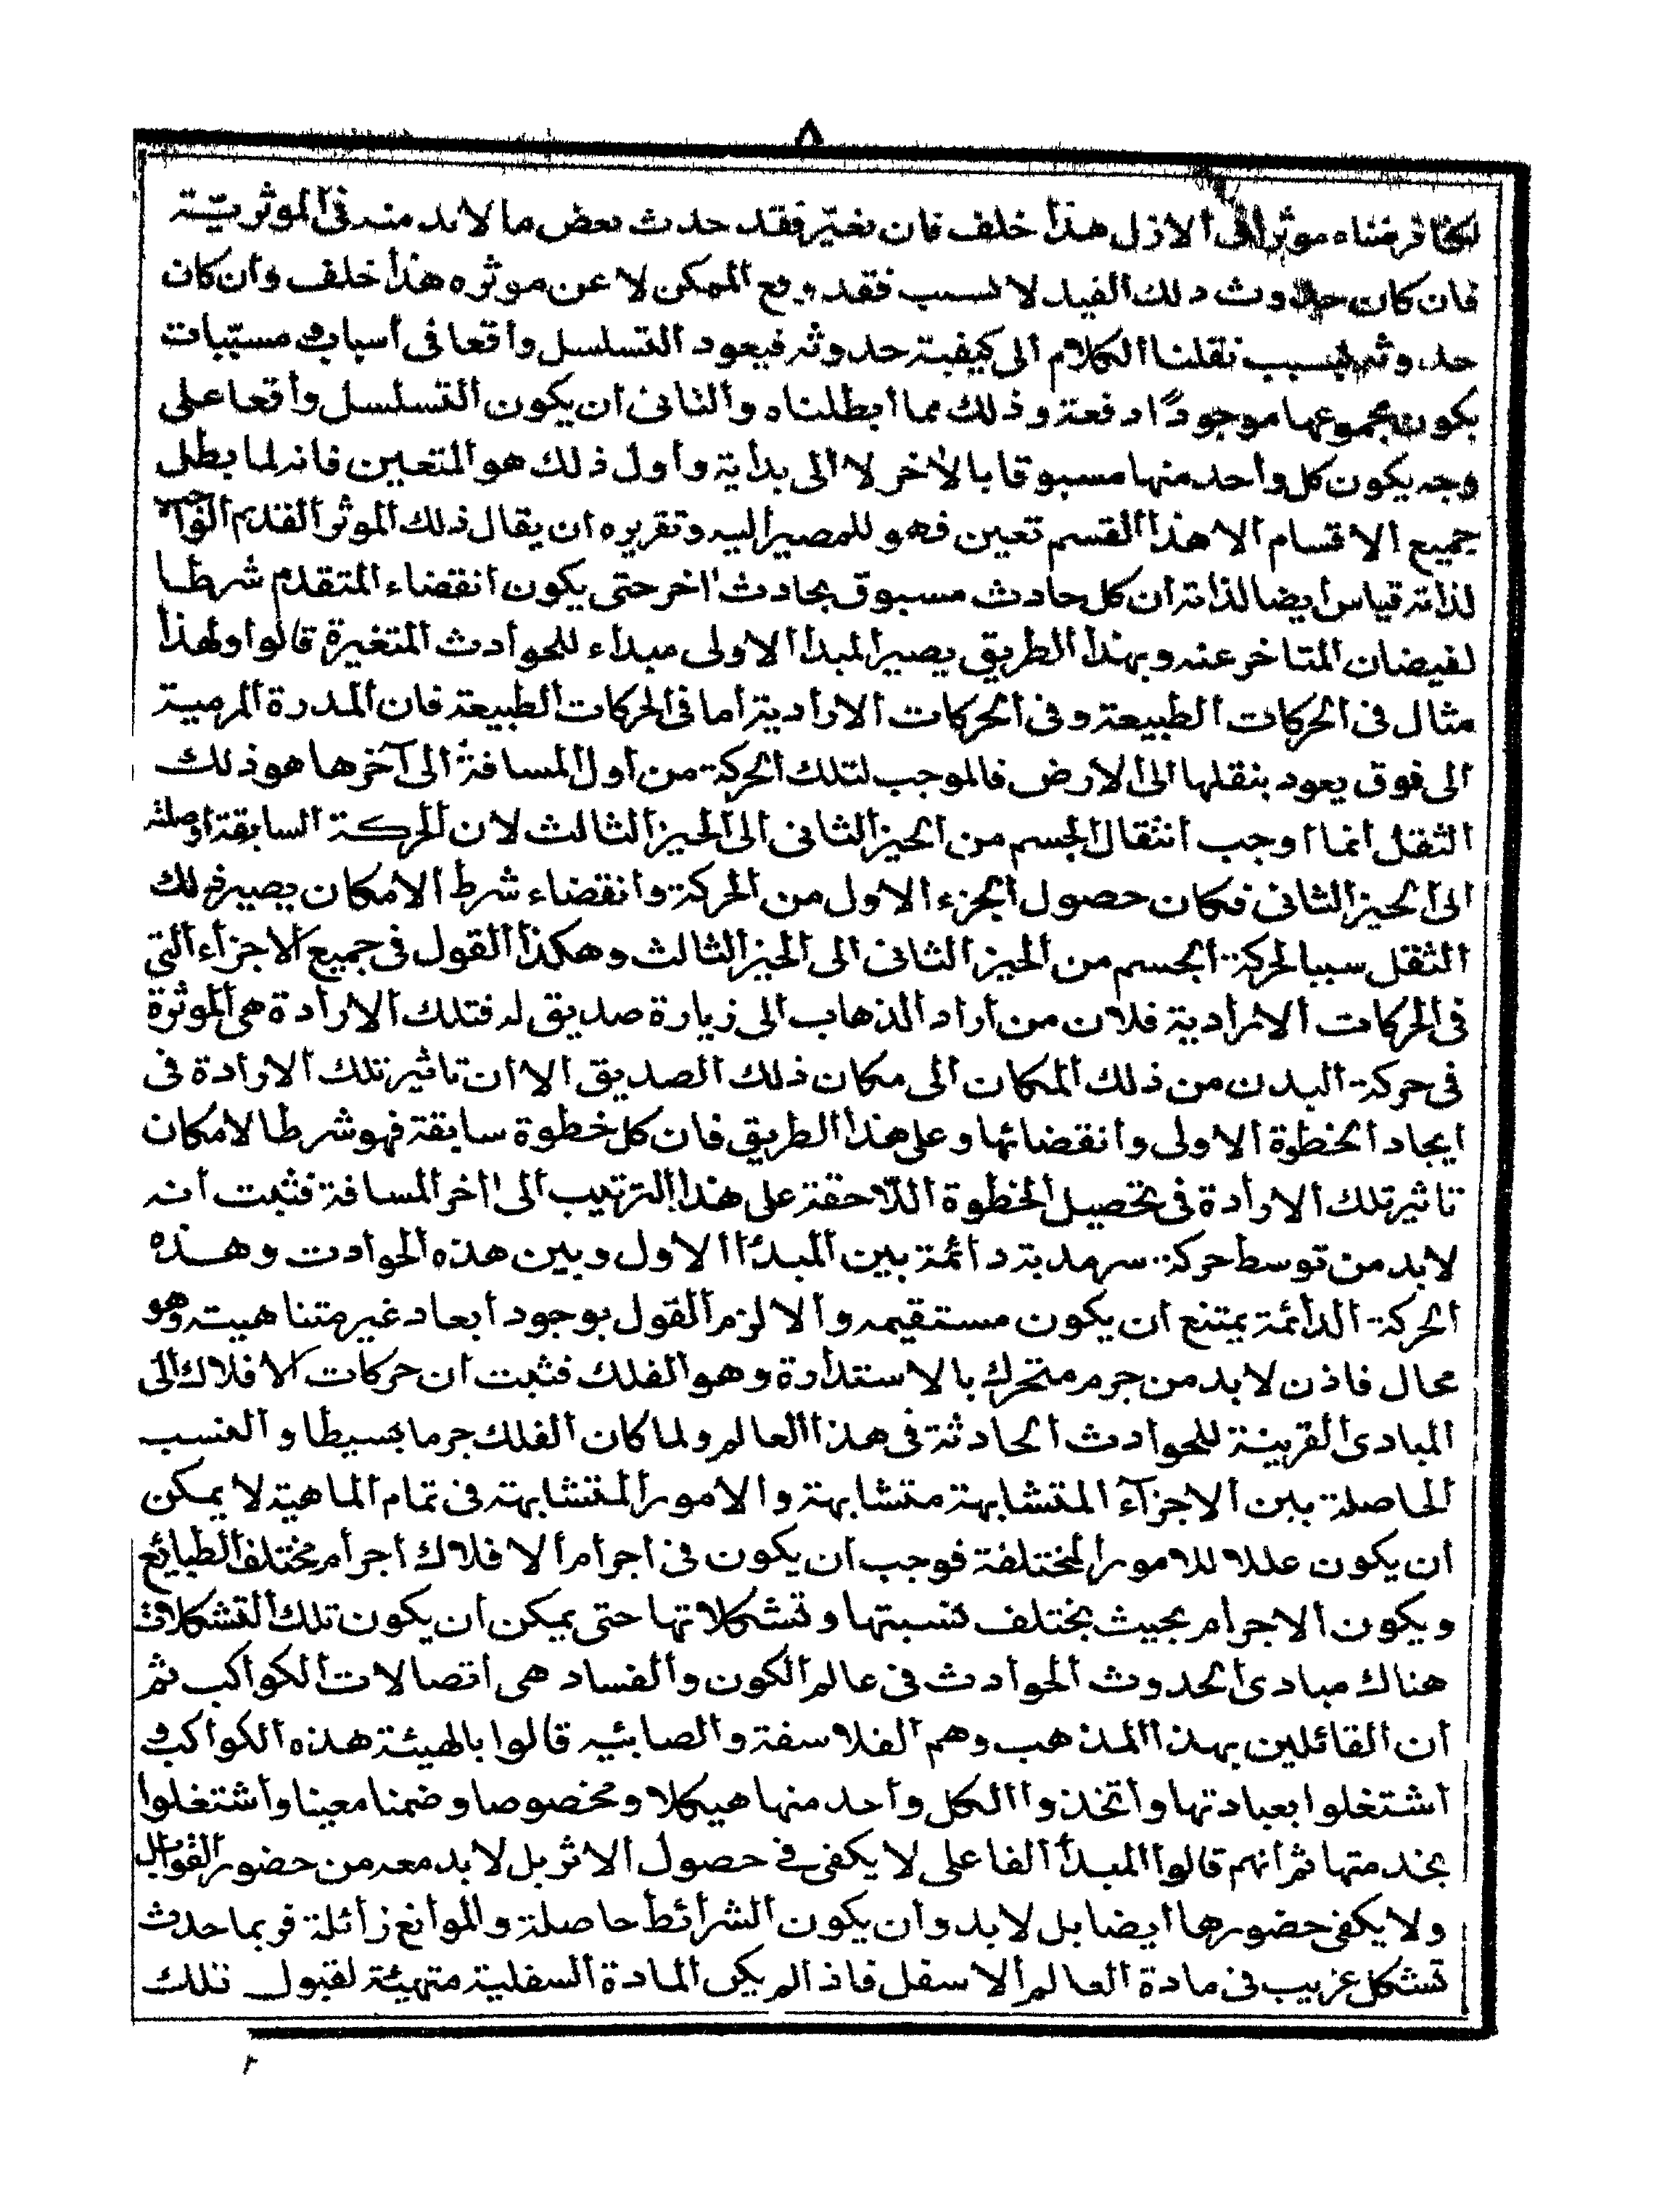 ٨
لكنا فرضناه موثرا فى الازل هذا خلف فان تغيّر فقد حدث بعض ما لا بد منه فى الموثريّة
فان كان حدوث ذلك القيد لا لسبب فقد وقع الممكن لا عن موثره هذا خلف وان كان
حدوثه لسبب نقلنا الكلام الى كيفية حدوثه فيعود التسلسل واقعا فى أسباب و مسبّبات
يكون مجموعها موجوداً دفعة وذلك مما أبطلناه والثانى أن يكون التسلسل واقعا على
وجه يكون كل واحد منها مسبوقا بالاخر لا الى بداية وأول ذلك هو المتعين فانه لما بطل
جميع الاقسام الا هذا القسم تعين فهو للمصير اليه وتقريره ان يقال ذلك الموثر القديم الواجب
لذاته قياس أيضا لذاته أن كل حادث مسبوق بحادث اخر حتى يكون انقضاء المتقدم شرطا
لفيضان المتاخر عنه وبهذا الطريق يصير المبدأ الاولى مبداء للحوادث المتغيرة قالوا ولهذا
مثال فى الحركات الطبيعة وفى الحركات الارادية أما فى الحركات الطبيعة فان المدرة المرمية
الى فوق يعود بنقلها الى الارض فالموجب لتلك الحركة من أول المسافة الى آخرها هو ذلك
الثقل انما اوجب انتقال الجسم من الحيز الثانى الى الحيز الثالث لان الحركة السابقة اوصلته
الى الحيز الثانى فكان حصول الجزء الاول من الحركة وانقضاء شرط الامكان يصير ذلك
الثقل سببا لحركة الجسم من الحيز الثانى الى الحيز الثالث وهكذا القول فى جميع الاجزاء التي
فى الحركات الارادية فلان من أراد الذهاب الى زيارة صديق له فتلك الارادة هى الموثرة
فى حركة البدن من ذلك المكان الى مكان ذلك الصديق الا ان تاثير تلك الارادة فى
ايجاد الخطوة الاولى وانقضائها وعلى هذا الطريق فان كل خطوة سابقة فهو شرط الامكان
تاثير تلك الارادة فى تحصيل الخطوة اللاحقة على هذا الترتيب الى اخر المسافة فثبت أنه
لا بد من توسط حركة سرمدية دائمة بين المبدأ الاول وبين هذه الحوادث وهذه
الحركة الدائمة يمتنع ان يكون مستقيمه والا لزم القول بوجود أبعاد غير متناهيته وهو
محال فاذن لا بد من جرم متحرك بالاستدارة وهو الفلك فثبت ان حركات الافلاك الى
المبادى القريبة للحوادث الحادثة فى هذا العالم ولما كان الفلك جرما بسيطا والنسب
الحاصلة بين الاجزآء المتشابهة متشابهة والامور المتشابهة فى تمام الماهية لا يمكن
أن يكون عللا للامور المختلفة فوجب ان يكون فى اجرام الافلاك اجرام مختلف الطبائع
ويكون الاجرام بحيث بختلف نسبتها وتشكلاتها حتى يمكن أن يكون تلك التشكلات
هناك مبادى الحدوث الحوادث فى عالم الكون والفساد هى اتصالات الكواكب ثم
ان القائلين بهذا المذهب وهم الفلاسفة والصابئيه قالوا بالهيئة هذه الكواكب و
اشتغلوا بعبادتها واتخذوا الكل واحد منها هيكلا ومخصوصا وضمنا معينا واشتغلوا
بخدمتها ثم انهم قالوا المبدأ الفاعلى لا يكفى فى حصول الاثر بل لا بد معه من حضور القوابل
ولا يكفى حضورها أيضا بل لا بد وأن يكون الشرائط حاصلة والموانع زائلة فربما حدث
تشكل غريب فى مادة العالم الاسفل فاذا لم يكن المادة السفلية متهيئة لقبول تلك
٢